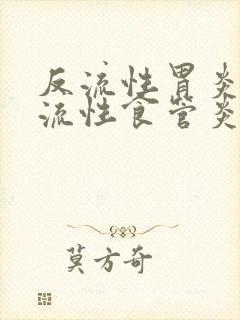 反流性胃炎
流性食管炎
莫方奇